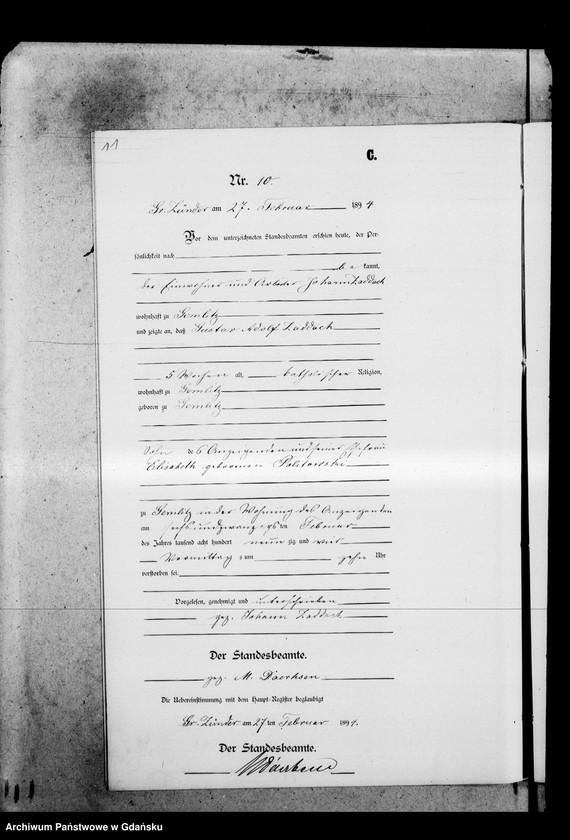 11
C.
Nr. 10.
Gr. Zünder am 27. Februar 1894
Vor dem unterzeichneten Standesbeamten erschien heute, der Per-
sönlichkeit nach
be kannt,
der Einwohner und Arbeiter Johann Zaddach
wohnhaft zu Gemlitz
und zeigte an, daß Gustav Adolf Zaddach
5 Wochen alt, katholischer Religion,
wohnhaft zu Gemlitz
geboren zu Gemlitz
Sohn des Anzeigenden und seiner Ehefrau
Elisabeth geborenen Politowski
zu Gemlitz in der Wohnung des Anzeigenden
am sechsundzwanzigsten Februar
des Jahres tausend acht hundert neunzig und vier
Vormittags um zehn Uhr
verstorben sei.
Vorgelesen, genehmigt und unterschrieben
gez. Johann Zaddach
Der Standesbeamte.
gez. M. Doerksen
Die Uebereinstimmung mit dem Haupt-Register beglaubigt
Gr. Zünder am 27ten Februar 1894.
Der Standesbeamte.
Archiwum Państwowe w Gdańsku